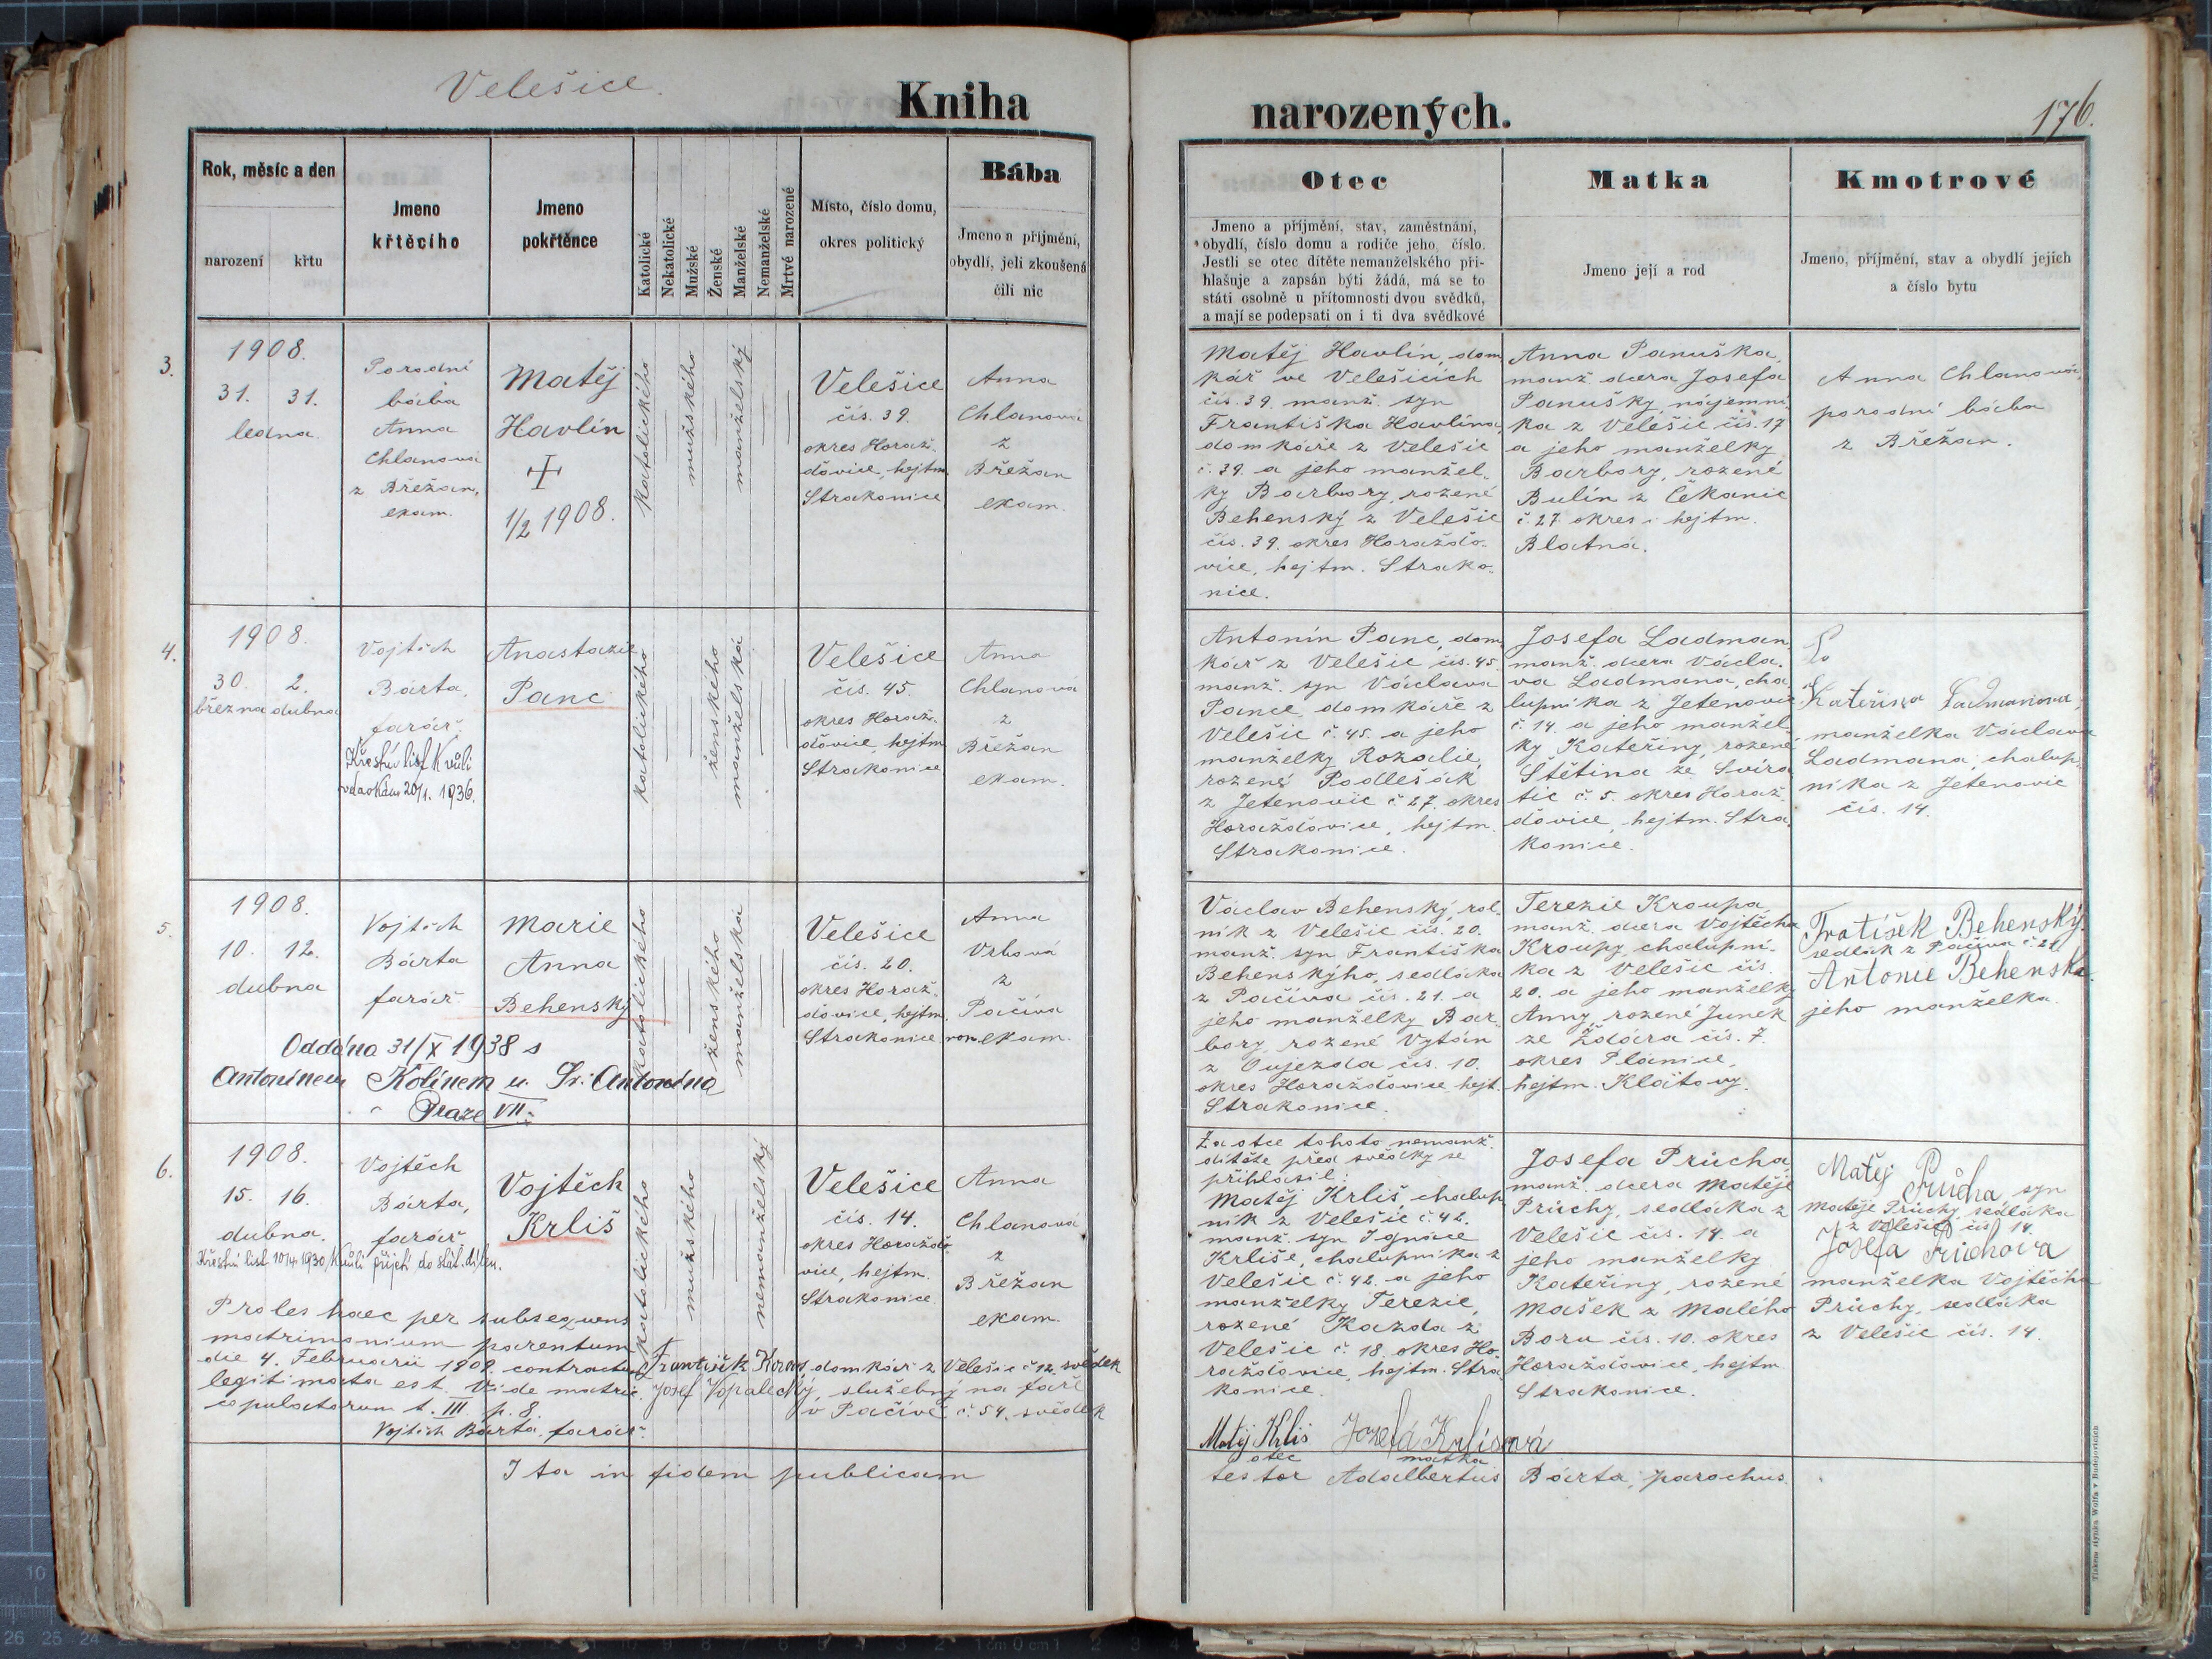 Velešice.
Kniha
narozených.
176.
Rok, měsíc a den
narození
křtu
Jmeno
křtěcího
Jmeno
pokřtěnce
Katolické
Nekatolické
Mužské
Ženské
Manželské
Nemanželské
Mrtvé narozené
Místo, číslo domu,
okres politický
Bába
Jmeno a přijmění,
obydlí, jeli zkoušená
čili nic
Otec
Jmeno a příjmění, stav, zaměstnání,
obydlí, číslo domu a rodiče jeho, číslo.
Jestli se otec dítěte nemanželského při-
hlašuje a zapsán býti žádá, má se to
státi osobně u přítomnosti dvou svědků,
a mají se podepsati on i ti dva svědkové
Matka
Jmeno její a rod
Kmotrové
Jmeno, příjmění, stav a obydlí jejich
a číslo bytu
3.
1908.
31. 31.
ledna.
Porodní
bába
Anna
Chlanová
z Břežan,
exam.
Matěj
Havlín
1/2 1908.
katolického
mužského
manželský
Velešice
čís. 39.
okres Horaž-
dovice, hejtm.
Strakonice
Anna
Chlanová
z
Břežan
exam.
Matěj Havlín, dom
kář ve Velešicích
čís. 39. manž. syn
Františka Havlína,
domkáře z Velešic
č. 39. a jeho manžel-
ky Barbory, rozené
Behenský z Velešic
čís. 39. okres Horažďo-
vice, hejtm. Strako-
nice.
Anna Panuška,
manž. dcera Josefa
Panušky, nájemní-
ka z Velešic čís. 17
a jeho manželky
Barbory, rozené
Bulín z Čekanic
č. 27. okres i hejtm.
Blatná.
Anna Chlanová,
porodní bába
z Břežan.
4.
1908.
30. 2.
března dubna
Vojtěch
Bárta,
farář.
Křestní list kvůli
vdavkám 20/1. 1936.
Anastazie
Panc
katolického
ženského
manželská
Velešice
čís. 45.
okres Horaž-
dovice, hejtm.
Strakonice
Anna
Chlanová
z
Břežan
exam.
Antonín Panc, dom
kář z Velešic čís. 45.
manž. syn Václava
Pance, domkáře z
Velešic č. 45. a jeho
manželky Rozalie,
rozené Podlešák
z Jetenovic č. 27. okres
Horažďovice, hejtm.
Strakonice.
Josefa Ladman,
manž. dcera Václa-
va Ladmana, cha-
lupníka z Jetenovic
č. 14. a jeho manžel-
ky Kateřiny, rozené
Štětina ze Svíra-
tic č. 5. okres Horaž-
dovice, hejtm. Stra-
konice.
Kateřina Ladmanova,
manželka Václava
Ladmana, chalup-
níka z Jetenovic
čís. 14.
5.
1908.
10. 12.
dubna
Vojtěch
Bárta
farář.
Marie
Anna
Behenský
Oddána 31/X 1938 s
Antonínem Kolínem u Sv. Antonína
v Praze VII.
katolického
ženského
manželská
Velešice
čís. 20.
okres Horaž-
dovice, hejtm.
Strakonice
Anna
Vrbová
z
Pačiva
non exam.
Václav Behenský, rol-
ník z Velešic čís. 20.
manž. syn Františka
Behenskýho, sedláka
z Pačiva čís. 21. a
jeho manželky Bar-
bory, rozené Vytán
z Oujezda čís. 10.
okres Horažďovice, hejt.
Strakonice.
Terezie Kroupa,
manž. dcera Vojtěcha
Kroupy, chalupní-
ka z Velešic čís.
20. a jeho manželky
Anny, rozené Junek
ze Ždára čís. 7.
okres Plánice,
hejtm. Klatovy.
Fratíšek Behenský.
sedlák z Pačiva č. 21
Antonie Behenska
jeho manželka.
6.
1908.
15. 16.
dubna.
Vojtěch
Bárta,
farář.
Křestní list 10/4 1930 kvůli přijetí do stát. dílen.
Vojtěch
Krliš
katolického
mužského
nemanželský
Velešice
čís. 14.
okres Horažďo-
vice, hejtm.
Strakonice.
Anna
Chlanová
z
Břežan
exam.
Proles haec per subsequens
matrimonium parentum
die 4. Februarii 1909. contractum
legitimata est. Vide matric.
copulatorum t. III p. 8.
Vojtěch Bárta, farář.
František domkář z Velešic č. 12. svědek
Josef Vopalecký, služebný na faře
v Pačivě č. 54. svědek
Za otce tohoto nemanž.
dítěte před svědky se
přihlásil:
Matěj Krliš, chalup
ník z Velešic č. 42.
manž. syn Ignáce
Krliše, chalupníka z
Velešic č. 42. a jeho
manželky Terezie,
rozené Kazda z
Velešic č. 18. okres Ho-
raždovice, hejtm. Stra-
konice.
Matěj Krlis
otec
Jozefa Krlisová
matka
Josefa Průcha,
manž. dcera Matěje
Průchy, sedláka z
Velešic čís. 14. a
jeho manželky
Kateřiny, rozené
Mašek z Malého
Boru čís. 10. okres
Horažďovice, hejtm.
Strakonice.
Matěj Průcha, syn
Matěje Průchy, sedláka
z Velešic čís. 14.
Josefa Průchova
manželka Vojtěcha
Průchy, sedláka
z Velešic čís. 14.
Ita in fidem publicam
testor Adalbertus Bárta, parochus.
Tiskem Wolfa v Budějovicích